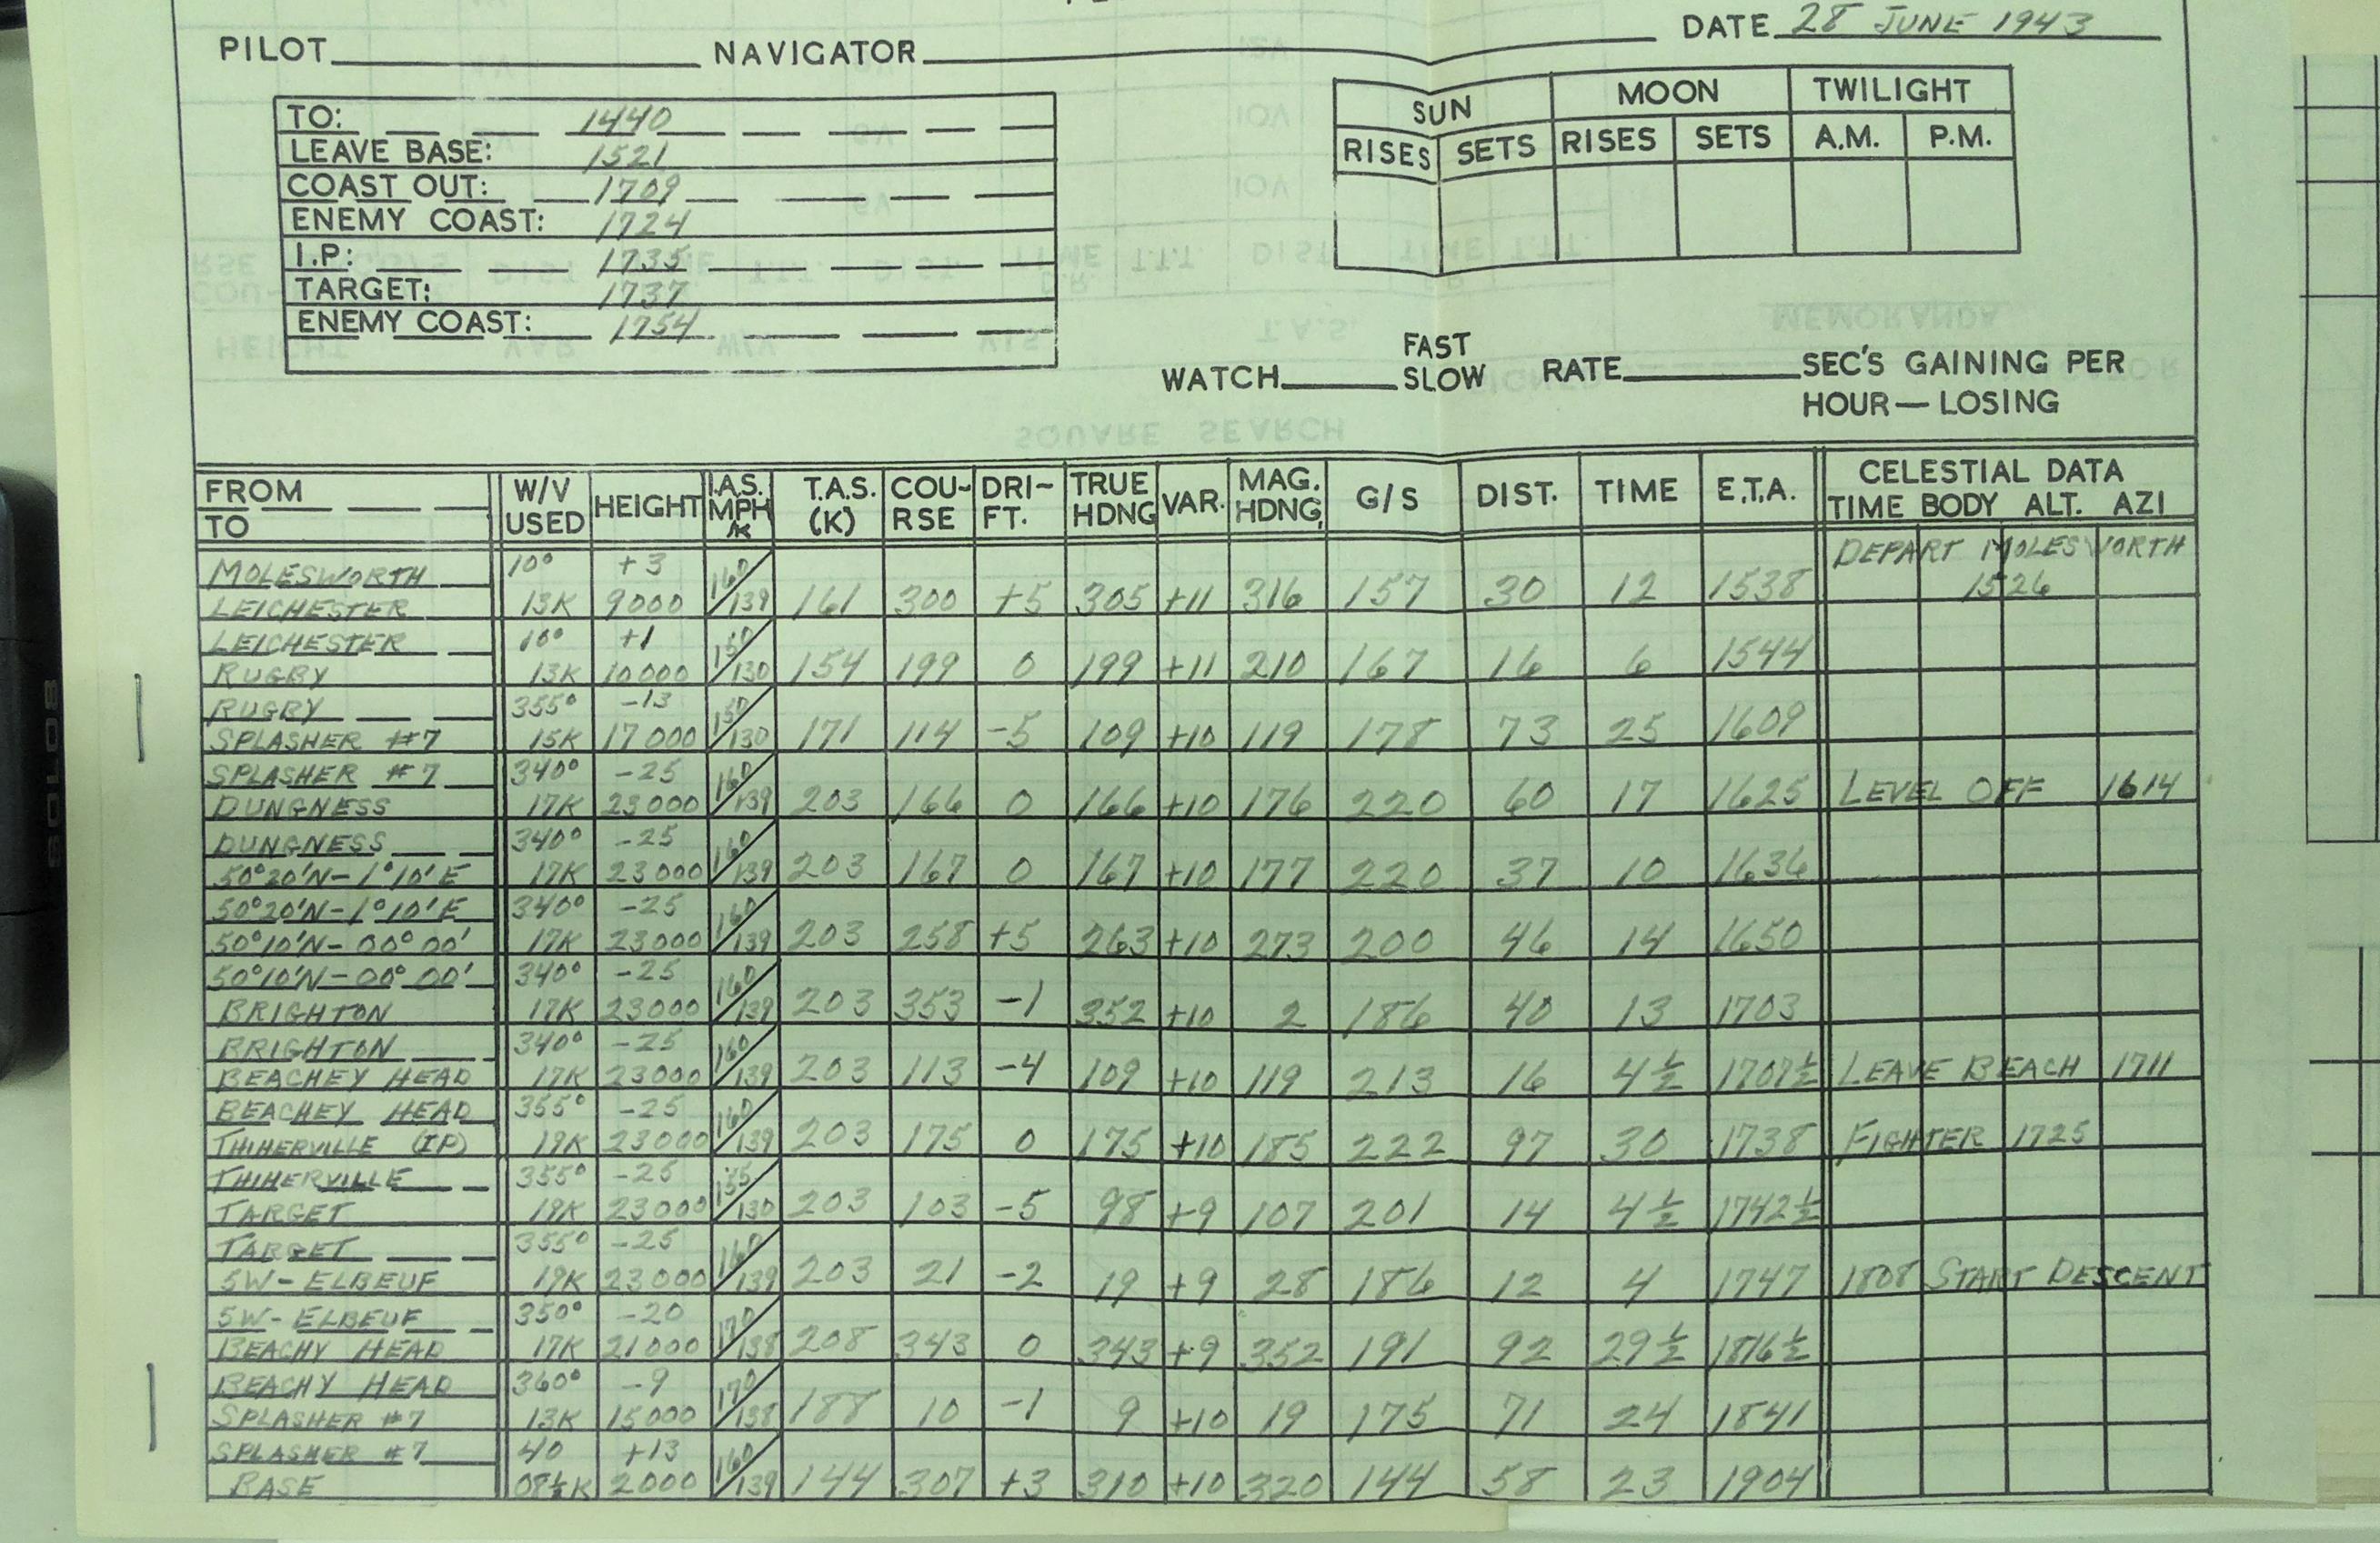 DATE 28 JUNE 1943
PILOT NAVIGATOR
TO: 1440
LEAVE BASE: 1521
COAST OUT: 1709
ENEMY COAST: 1724
I.P: 1735
TARGET: 1737
ENEMY COAST: 1754
SUN MOON TWILIGHT
RISES SETS RISES SETS A.M. P.M.
WATCH FAST SLOW RATE SEC'S GAINING PER
HOUR — LOSING
SQUARE SEARCH
FROM W/V HEIGHT I.A.S. T.A.S. COU- DRI- TRUE VAR. MAG. G/S DIST. TIME E.T.A. CELESTIAL DATA
TO USED MPH/K (K) RSE FT. HDNG HDNG. TIME BODY ALT. AZI
MOLESWORTH 10° +3 160 DEPART MOLESWORTH
LEICHESTER 13K 9000 139 161 300 +5 305 +11 316 157 30 12 1538 1526
LEICHESTER 10° +1 150
RUGBY 13K 10000 130 154 199 0 199 +11 210 167 16 6 1544
RUGBY 355° -13 150
SPLASHER #7 15K 17000 130 171 114 -5 109 +10 119 178 73 25 1609
SPLASHER #7 340° -25 160
DUNGNESS 17K 23000 139 203 166 0 166 +10 176 220 60 17 1625 LEVEL OFF 1614
DUNGNESS 340° -25 160
50°20'N-1°10'E 17K 23000 139 203 167 0 167 +10 177 220 37 10 1636
50°20'N-1°10'E 340° -25 160
50°10'N-00°00' 17K 23000 139 203 258 +5 263 +10 273 200 46 14 1650
50°10'N-00°00' 340° -25 160
BRIGHTON 17K 23000 139 203 353 -1 352 +10 2 186 40 13 1703
BRIGHTON 340° -25 160
BEACHEY HEAD 17K 23000 139 203 113 -4 109 +10 119 213 16 4½ 1707½ LEAVE BEACH 1711
BEACHEY HEAD 355° -25 160
THIHERVILLE (IP) 19K 23000 139 203 175 0 175 +10 185 222 97 30 1738 FIGHTER 1725
THIHERVILLE 355° -25 155
TARGET 19K 23000 130 203 103 -5 98 +9 107 201 14 4½ 1742½
TARGET 355° -25 160
SW-ELBEUF 19K 23000 139 203 21 -2 19 +9 28 186 12 4 1747 1808 START DESCENT
SW-ELBEUF 350° -20 170
BEACHY HEAD 17K 21000 138 208 343 0 343 +9 352 191 92 29½ 1816½
BEACHY HEAD 360° -9 170
SPLASHER #7 13K 15000 138 188 10 -1 9 +10 19 175 71 24 1841
SPLASHER #7 40 +13 160
BASE 08½K 2000 139 144 307 +3 310 +10 320 144 58 23 1904